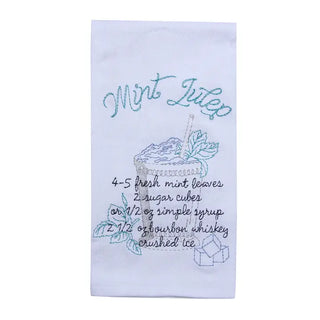 Mint Julep
4-5 fresh mint leaves
2 sugar cubes
or 1/2 oz simple syrup
2 1/2 oz bourbon whiskey
crushed ice